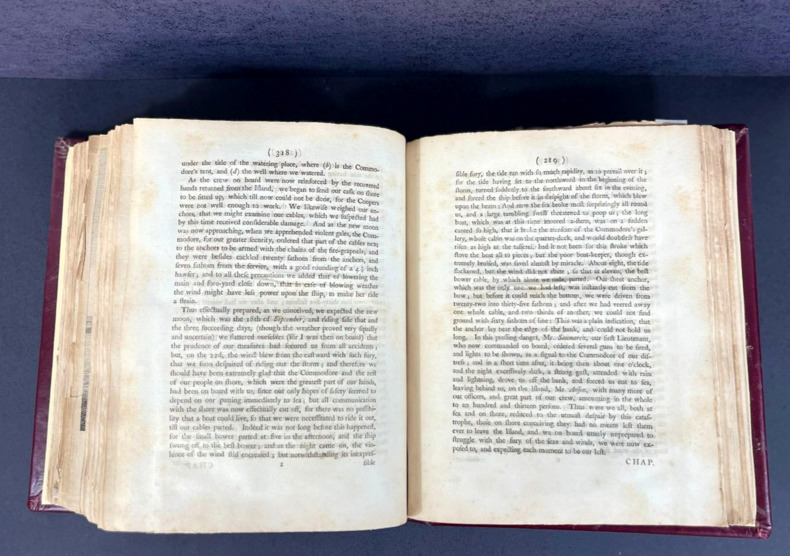 ( 328 )
under the ſide of the watering place, where (b) is the Commo-
dore's tent, and (d) the well where we watered.
As the crew on board were now reinforced by the recovered
hands returned from the Iſland, we began to ſend our caſk on ſhore
to be fitted up, which till now could not be done, for the Coopers
were not well enough to work. We likewiſe weighed our an-
chors, that we might examine our cables, which we ſuſpected had
by this time received conſiderable damage. And as the new moon
was now approaching, when we apprehended violent gales, the Com-
modore, for our greater ſecurity, ordered that part of the cables next
to the anchors to be armed with the chains of the fire-grapnels; and
they were beſides cackled twenty fathom from the anchors, and
ſeven fathom from the ſervice, with a good rounding of a 4½ inch
hawſer; and to all theſe precautions we added that of lowering the
main and fore-yard cloſe down, that in caſe of blowing weather
the wind might have leſs power upon the ſhip, to make her ride
a ſtrain.
Thus effectually prepared, as we conceived, we expected the new
moon, which was the 18th of September, and riding ſafe that and
the three ſucceeding days, (though the weather proved very ſqually
and uncertain) we flattered ourſelves (for I was then on board) that
the prudence of our meaſures had ſecured us from all accidents;
but, on the 22d, the wind blew from the eaſtward with ſuch fury,
that we ſoon deſpaired of riding out the ſtorm; and therefore we
ſhould have been extremely glad that the Commodore and the reſt
of our people on ſhore, which were the greateſt part of our hands,
had been on board with us, ſince our only hopes of ſafety ſeemed to
depend on our putting immediately to ſea; but all communication
with the ſhore was now effectually cut off, for there was no poſſibi-
lity that a boat could live, ſo that we were neceſſitated to ride it out,
till our cables parted. Indeed it was not long before this happened,
for the ſmall bower parted at five in the afternoon, and the ſhip
ſwung off to the beſt bower; and as the night came on, the vio-
lence of the wind ſtill encreaſed; but notwithſtanding its inexpreſ-
CHAP. 2 ſible
( 219 )
ſible fury, the tide ran with ſo much rapidity, as to prevail over it;
for the tide having ſet to the northward in the beginning of the
ſtorm, turned ſuddenly to the ſouthward about ſix in the evening,
and forced the ſhip before it in deſpight of the ſtorm, which blew
upon the beam: And now the ſea broke moſt ſurpriſingly all round
us, and a large tumbling ſwell threatened to poop us; the long
boat, which was at this time moored a-ſtern, was on a ſudden
canted ſo high, that it broke the tranſom of the Commodore's gal-
lery, whoſe cabin was on the quarter-deck, and would doubtleſs have
riſen as high as the tafferel, had it not been for this ſtroke which
ſtove the boat all to pieces; but the poor boat-keeper, though ex-
tremely bruiſed, was ſaved almoſt by miracle. About eight, the tide
ſlackened, but the wind did not abate; ſo that at eleven, the beſt
bower cable, by which alone we rode, parted. Our ſheet anchor,
which was the only one we had left, was inſtantly cut from the
bow; but before it could reach the bottom, we were driven from
twenty-two into thirty-five fathom; and after we had veered away
one whole cable, and two thirds of another, we could not find
ground with ſixty fathom of line: This was a plain indication, that
the anchor lay near the edge of the bank, and could not hold us
long. In this preſſing danger, Mr. Saumarez, our firſt Lieutenant,
who now commanded on board, ordered ſeveral guns to be fired,
and lights to be ſhown, as a ſignal to the Commodore of our diſ-
treſs; and in a ſhort time after, it being then about one o'clock,
and the night exceſſively dark, a ſtrong guſt, attended with rain
and lightning, drove us off the bank, and forced us out to ſea,
leaving behind us, on the Iſland, Mr. Anſon, with many more of
our officers, and great part of our crew, amounting in the whole
to an hundred and thirteen perſons. Thus were we all, both at
ſea and on ſhore, reduced to the utmoſt deſpair by this cataſ-
trophe, thoſe on ſhore conceiving they had no means left them
ever to leave the Iſland, and we on board utterly unprepared to
ſtruggle with the fury of the ſeas and winds, we were now ex-
poſed to, and expecting each moment to be our laſt.
CHAP.